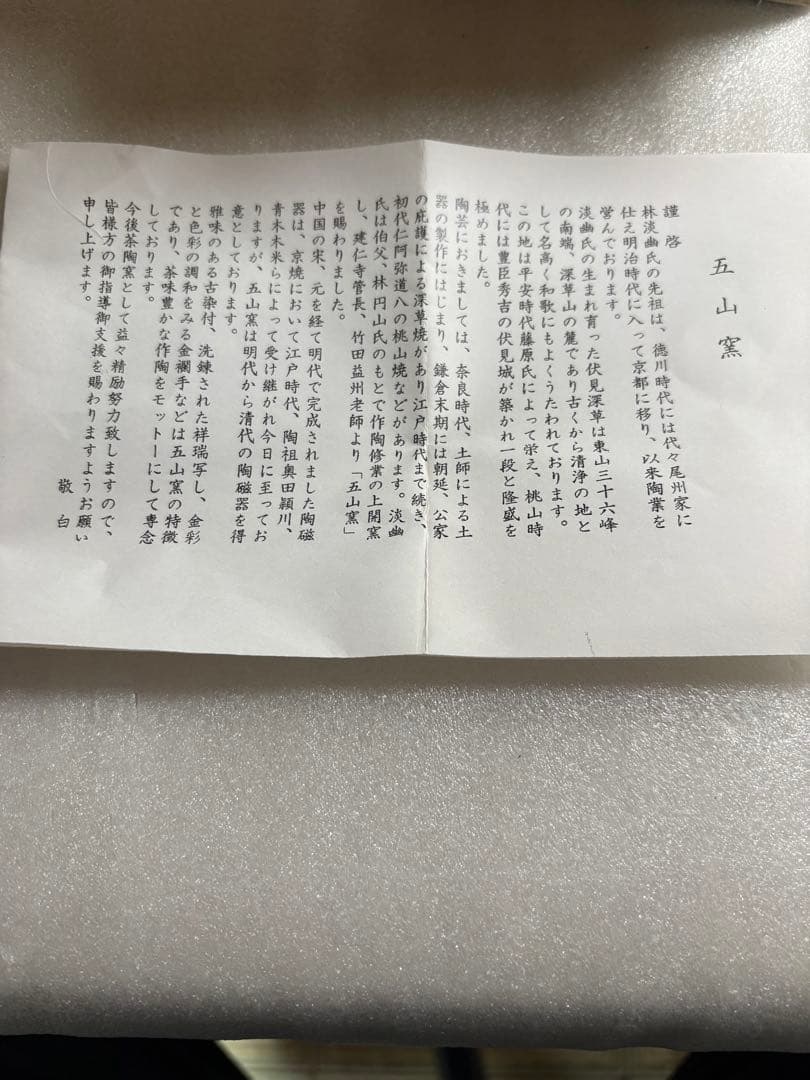 五山窯
謹啓
林淡幽氏の先祖は、徳川時代には代々尾州家に
仕え明治時代に入って京都に移り、以来陶業を
営んでおります。
淡幽氏の生まれ育った伏見深草は東山三十六峰
の南端、深草山の麓であり古くから清浄の地と
して名高く和歌にもよくうたわれております。
この地は平安時代藤原氏によって栄え、桃山時
代には豊臣秀吉の伏見城が築かれ一段と隆盛を
極めました。
陶芸におきましては、奈良時代、土師による土
器の製作にはじまり、鎌倉末期には朝廷、公家
の庇護による深草焼があり江戸時代まで続き、
初代仁阿弥道八の桃山焼などがあります。淡幽
氏は伯父、林円山氏のもとで作陶修業の上開窯
し、建仁寺管長、竹田益州老師より「五山窯」
を賜わりました。
中国の宋、元を経て明代で完成されました陶磁
器は、京焼において江戸時代、陶祖奥田頴川、
青木木米らによって受け継がれ今日に至ってお
りますが、五山窯は明代から清代の陶磁器を得
意としております。
雅味のある古染付、洗錬された祥瑞写し、金彩
と色彩の調和をみる金襴手などは五山窯の特徴
であり、茶味豊かな作陶をモットーにして専念
しております。
今後茶陶窯として益々精励努力致しますので、
皆様方の御指導御支援を賜わりますようお願い
申し上げます。
敬白